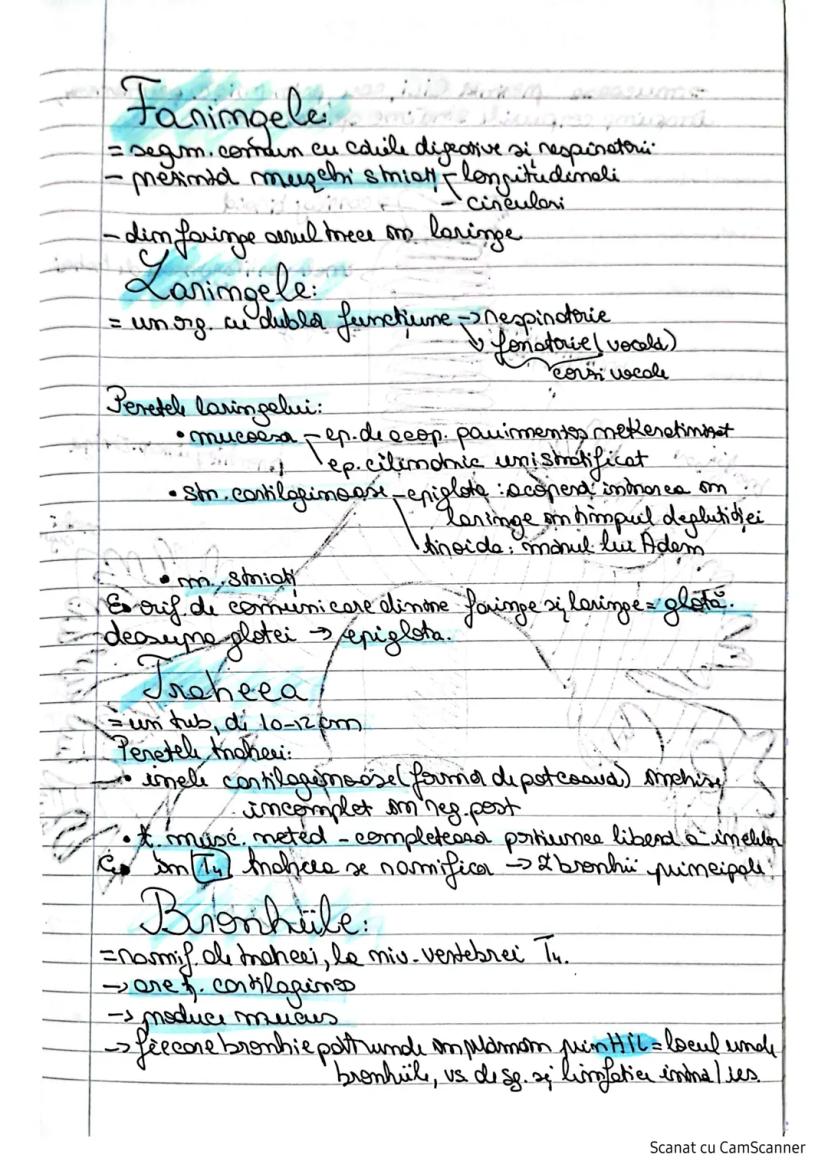 Faringele:
= segm. comun cu căile digestive și respiratorii.
- prezintă mușchi striați - longitudinali
- circulari
- din faringe aerul trece în laringe
Laringele:
= un org. cu dublă funcțiune → respiratorie
↘ fonatorie (vocală)
corzi vocale
Peretele laringelui:
• mucoasa - ep. de acop. pavimentos nekeratinizat
ep. cilindric unistratificat
• str. cartilaginoase - epiglota : acoperă intrarea în
laringe în timpul deglutiției
tiroida : mărul lui Adam
• m. striați
orif. de comunicare dintre faringe și laringe = glotă.
deasupra glotei → epiglota.
Traheea
= un tub, de 10-12 cm
Peretele traheei:
• inele cartilaginoase (formă de potcoavă) închise
incomplet în reg. post
• ț. musc. neted - completează porțiunea liberă a inelelor
în T4 traheea se ramifică → 2 bronhii principale.
Bronhiile:
= ramif. ale traheei, la niv. vertebrei T4.
→ are ț. cartilaginos
→ produce mucus
→ fiecare bronhie pătrunde în plămân prin Hil = locul unde
bronhiile, vs. de sg. și limfatice intră / ies.
Scanat cu CamScanner